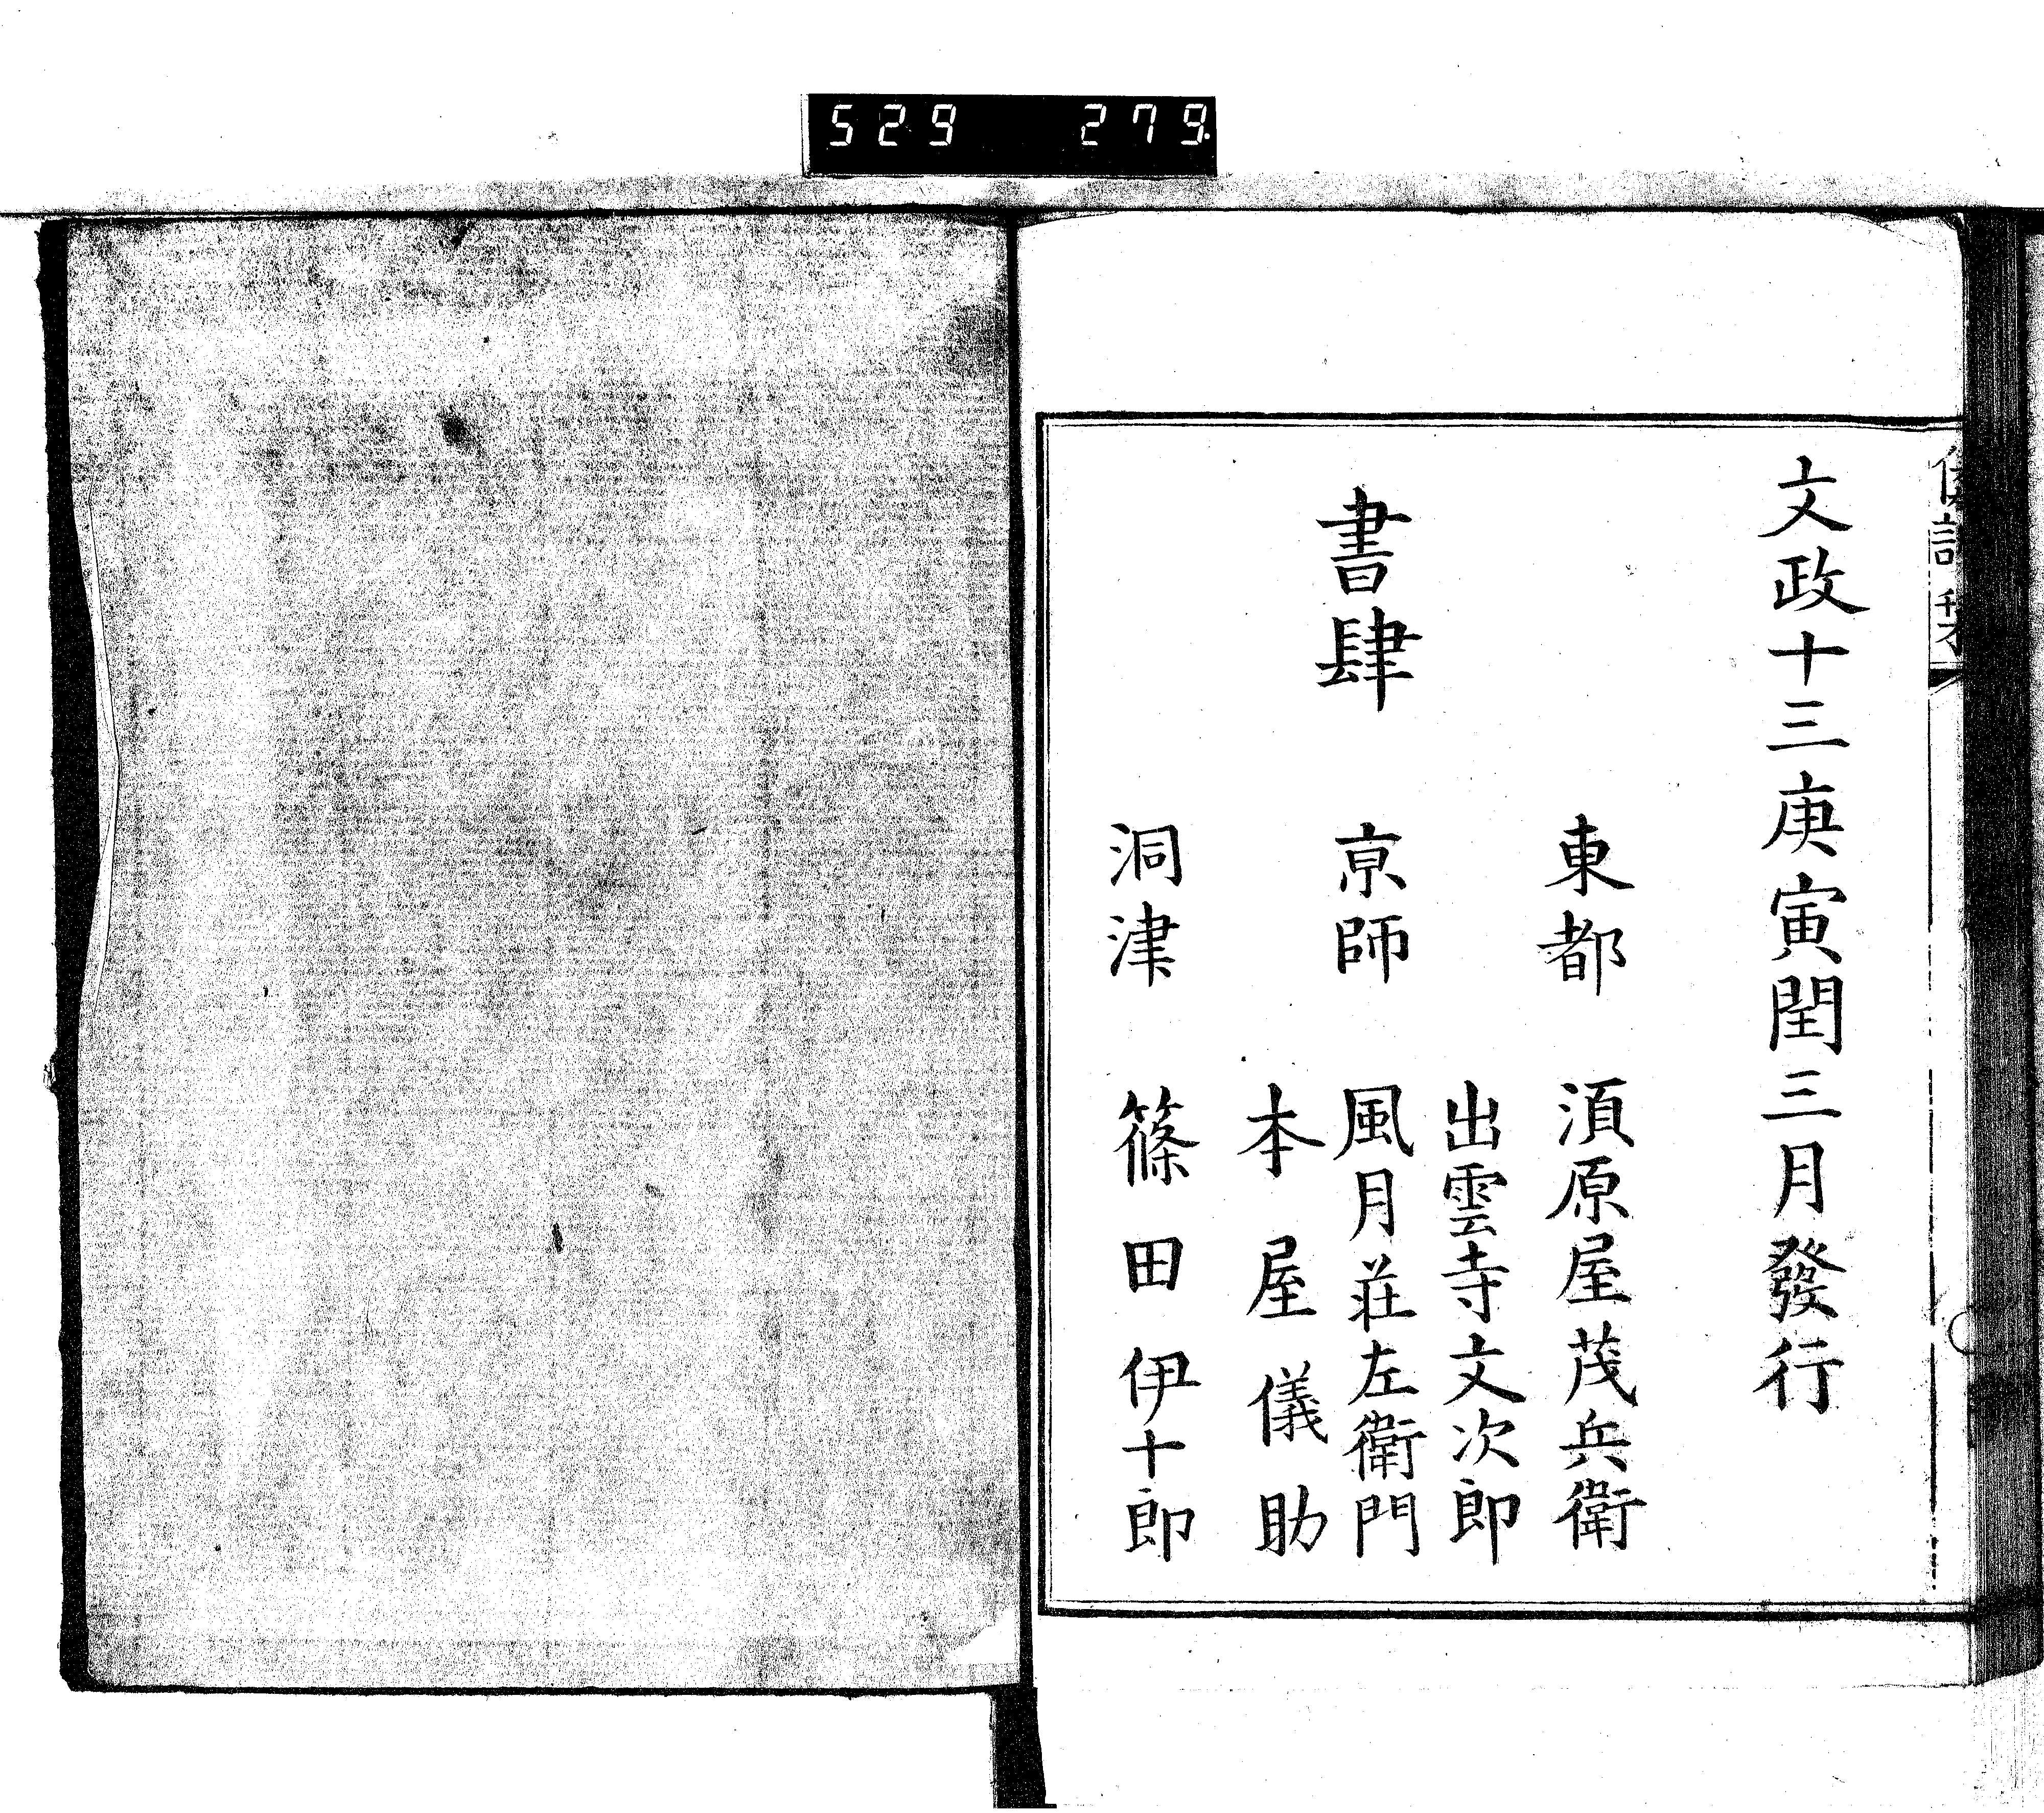 529 279.
文政十三庚寅閏三月發行
書肆
東都 湏原屋茂兵衛
出雲寺文次郎
亰師 風月莊左衛門
本屋儀助
洞津 篠田伊十郎